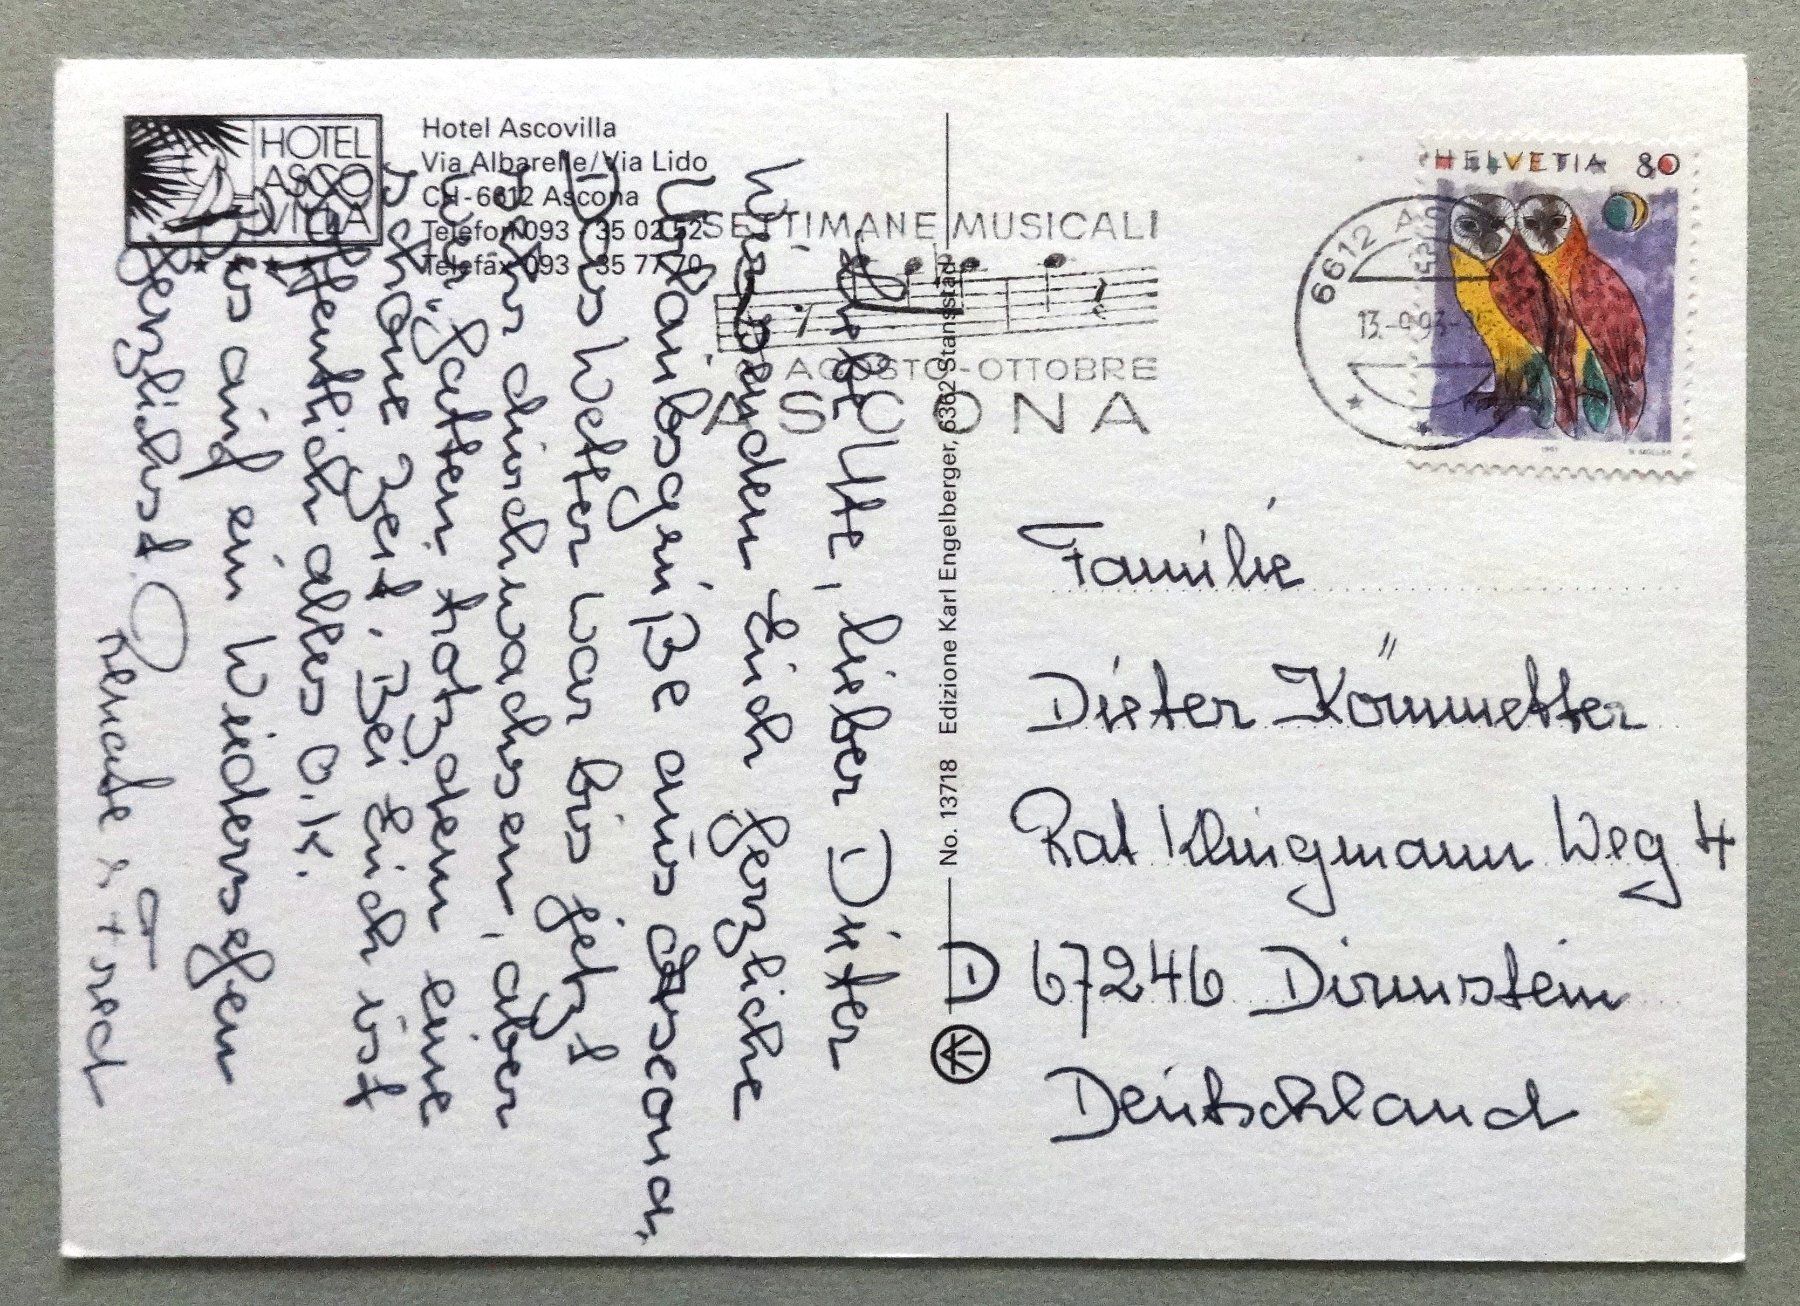 HOTEL
ASCO
VILLA
Hotel Ascovilla
Via Albarelle/Via Lido
CH-6612 Ascona
Telefon 093 - 35 02 52
Telefax 093 - 35 77 70
SETTIMANE MUSICALI
AGOSTO - OTTOBRE
ASCONA
6612 AS
13.-9.93
HELVETIA 80
Liebe Ute, lieber Dieter
Wir senden Euch herzliche
Urlaubsgrüße aus Ascona.
Das Wetter war bis jetzt
sehr durchwachsen, aber
wir hatten trotzdem eine
schöne Zeit. Bei Euch ist
hoffentlich alles O.K.
Bis auf ein Wiedersehen
herzlichst
Renate & Fred
No. 13718 Edizione Karl Engelberger, 6362 Stansstad
Familie
Dieter Körnmetter
Rat Klingmann Weg 4
D 67246 Dirmstein
Deutschland